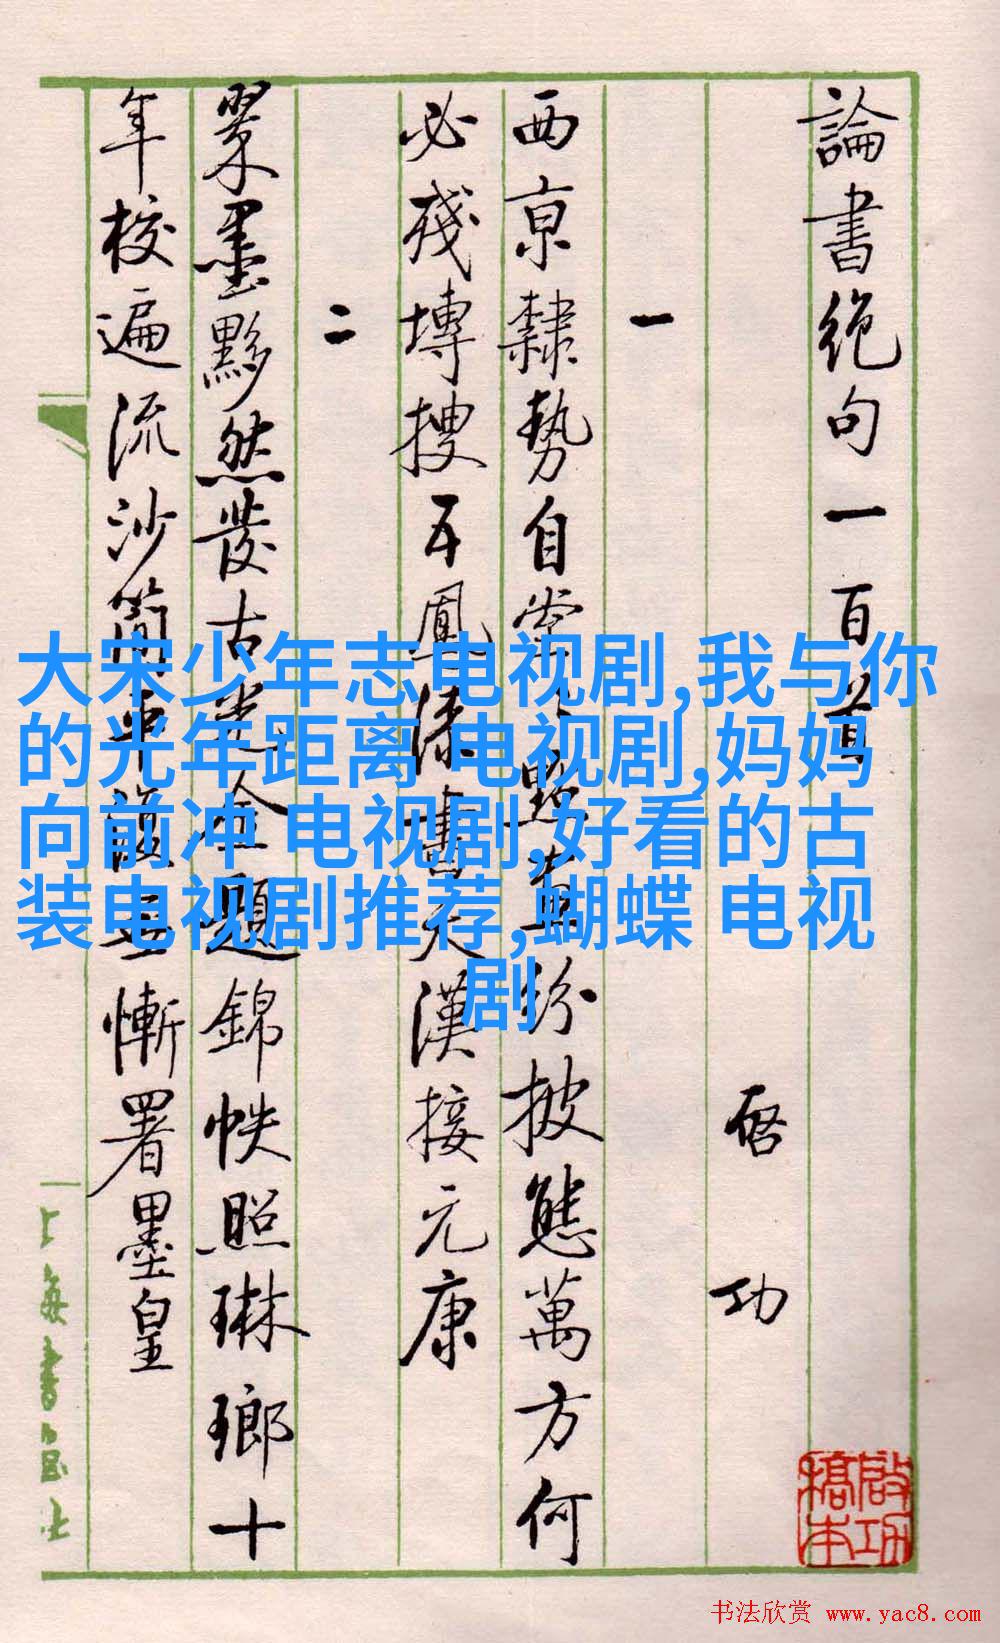 論書絕句一百首
启功
一
西京隸勢自堂堂點畫紛披態萬方何
必殘塼搜五鳳漆書天漢接元康
二
翠墨黟然發古光金題錦帙照琳瑯十
年校遍流沙簡平復無慚署墨皇
上海書画社
啟功
稿本
大宋少年志电视剧,我与你
的光年距离 电视剧,妈妈
向前冲 电视剧,好看的古
装电视剧推荐,蝴蝶 电视
剧
书法欣赏 www.yac8.com